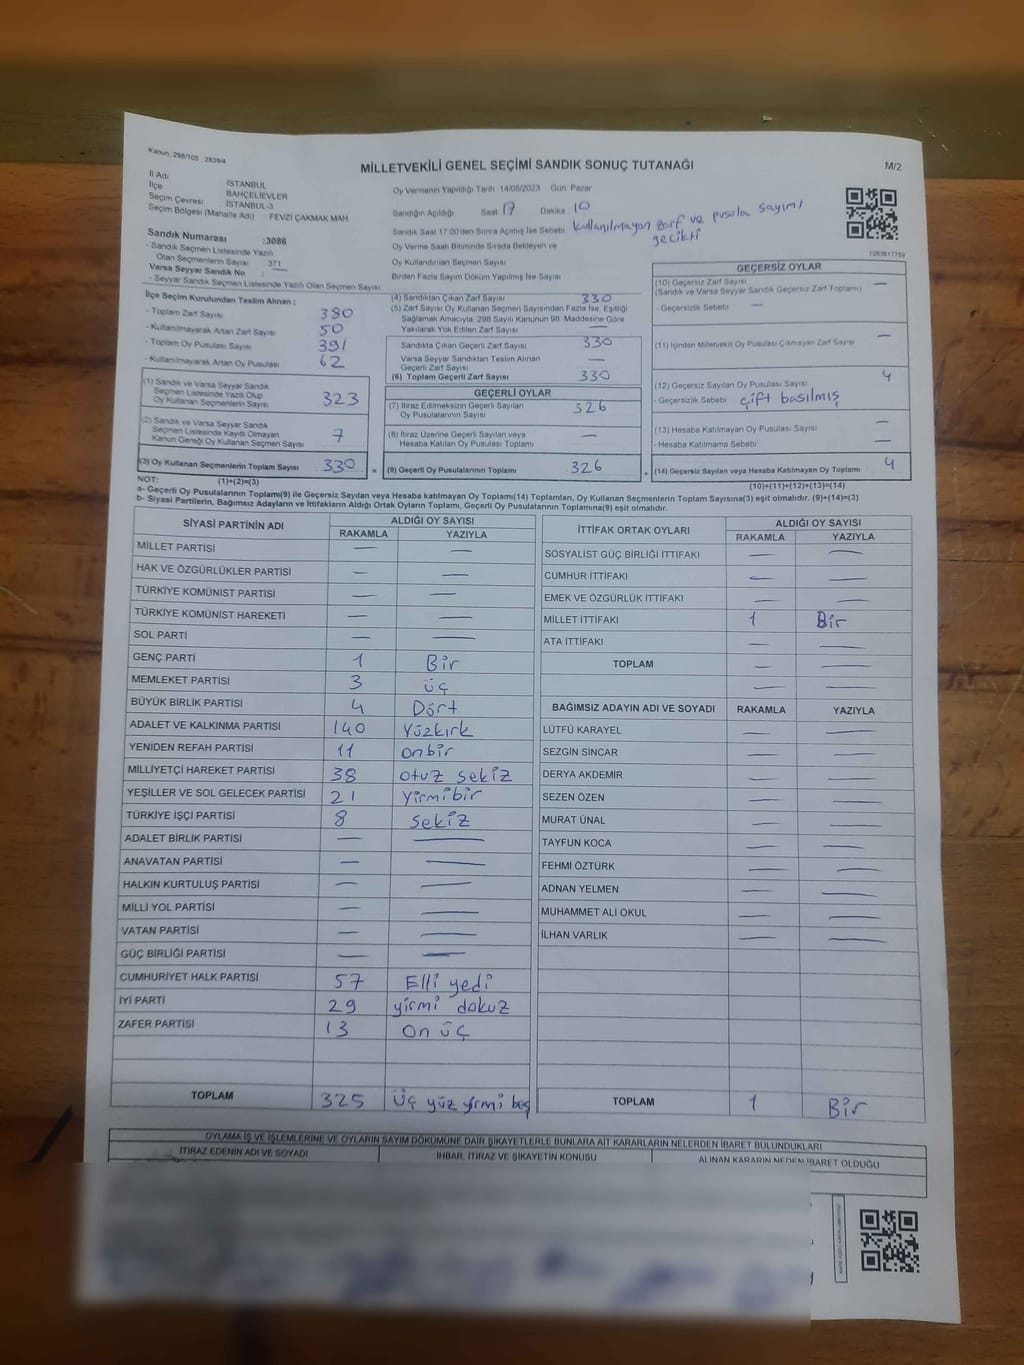 Kanun, 298/105 , 2839/4
MİLLETVEKİLİ GENEL SEÇİMİ SANDIK SONUÇ TUTANAĞI
M/2
İl Adı İSTANBUL
İlçe BAHÇELİEVLER
Seçim Çevresi İSTANBUL-3
Seçim Bölgesi (Mahalle Adı) FEVZİ ÇAKMAK MAH
Sandık Numarası :3086
- Sandık Seçmen Listesinde Yazılı
Olan Seçmenlerin Sayısı 371
Varsa Seyyar Sandık No
- Seyyar Sandık Seçmen Listesinde Yazılı Olan Seçmen Sayısı
Oy Vermenin Yapıldığı Tarih 14/05/2023 Gün Pazar
Sandığın Açıldığı Saat 17 Dakika 10
Sandık Saat 17:00'den Sonra Açılmış İse Sebebi kullanılmayan zarf ve pusula sayımı
gecikti
Oy Verme Saati Bitiminde Sırada Bekleyen ve
Oy Kullandırılan Seçmen Sayısı
Birden Fazla Sayım Döküm Yapılmış İse Sayısı
1083617759
İlçe Seçim Kurulundan Teslim Alınan ;
- Toplam Zarf Sayısı 380
- Kullanılmayarak Artan Zarf Sayısı 50
- Toplam Oy Pusulası Sayısı 391
- Kullanılmayarak Artan Oy Pusulası 62
(1) Sandık ve Varsa Seyyar Sandık
Seçmen Listesinde Yazılı Olup
Oy Kullanan Seçmenlerin Sayısı 323
(2) Sandık ve Varsa Seyyar Sandık
Seçmen Listesinde Kayıtlı Olmayan
Kanun Gereği Oy Kullanan Seçmen Sayısı 7
(3) Oy Kullanan Seçmenlerin Toplam Sayısı 330 =
(4) Sandıktan Çıkan Zarf Sayısı 330
(5) Zarf Sayısı Oy Kullanan Seçmen Sayısından Fazla İse, Eşitliği
Sağlamak Amacıyla, 298 Sayılı Kanunun 98. Maddesine Göre
Yakılarak Yok Edilen Zarf Sayısı —
Sandıkta Çıkan Geçerli Zarf Sayısı 330
Varsa Seyyar Sandıktan Teslim Alınan
Geçerli Zarf Sayısı —
(6) Toplam Geçerli Zarf Sayısı 330
GEÇERLİ OYLAR
(7) İtiraz Edilmeksizin Geçerli Sayılan
Oy Pusulalarının Sayısı 326
(8) İtiraz Üzerine Geçerli Sayılan veya
Hesaba Katılan Oy Pusulası Toplamı —
(9) Geçerli Oy Pusulalarının Toplamı 326 +
GEÇERSİZ OYLAR
(10) Geçersiz Zarf Sayısı —
(Sandık ve Varsa Seyyar Sandık Geçersiz Zarf Toplamı)
- Geçersizlik Sebebi —
(11) İçinden Milletvekili Oy Pusulası Çıkmayan Zarf Sayısı —
(12) Geçersiz Sayılan Oy Pusulası Sayısı 4
- Geçersizlik Sebebi çift basılmış
(13) Hesaba Katılmayan Oy Pusulası Sayısı —
- Hesaba Katılmama Sebebi —
(14) Geçersiz Sayılan veya Hesaba Katılmayan Oy Toplamı 4
NOT: (1)+(2)=(3)
(10)+(11)+(12)+(13)=(14)
a- Geçerli Oy Pusulalarının Toplamı(9) ile Geçersiz Sayılan veya Hesaba katılmayan Oy Toplamı(14) Toplamları, Oy Kullanan Seçmenlerin Toplam Sayısına(3) eşit olmalıdır. (9)+(14)=(3)
b- Siyasi Partilerin, Bağımsız Adayların ve İttifakların Aldığı Ortak Oyların Toplamı, Geçerli Oy Pusulalarının Toplamına(9) eşit olmalıdır.
SİYASİ PARTİNİN ADI ALDIĞI OY SAYISI
RAKAMLA YAZIYLA
MİLLET PARTİSİ — —
HAK VE ÖZGÜRLÜKLER PARTİSİ — —
TÜRKİYE KOMÜNİST PARTİSİ — —
TÜRKİYE KOMÜNİST HAREKETİ — —
SOL PARTİ — —
GENÇ PARTİ 1 Bir
MEMLEKET PARTİSİ 3 üç
BÜYÜK BİRLİK PARTİSİ 4 Dört
ADALET VE KALKINMA PARTİSİ 140 Yüzkırk
YENİDEN REFAH PARTİSİ 11 onbir
MİLLİYETÇİ HAREKET PARTİSİ 38 otuz sekiz
YEŞİLLER VE SOL GELECEK PARTİSİ 21 Yirmibir
TÜRKİYE İŞÇİ PARTİSİ 8 sekiz
ADALET BİRLİK PARTİSİ — —
ANAVATAN PARTİSİ — —
HALKIN KURTULUŞ PARTİSİ — —
MİLLİ YOL PARTİSİ — —
VATAN PARTİSİ — —
GÜÇ BİRLİĞİ PARTİSİ — —
CUMHURİYET HALK PARTİSİ 57 Elli yedi
İYİ PARTİ 29 yirmi dokuz
ZAFER PARTİSİ 13 On üç
TOPLAM 325 Üç yüz yirmi beş
İTTİFAK ORTAK OYLARI ALDIĞI OY SAYISI
RAKAMLA YAZIYLA
SOSYALİST GÜÇ BİRLİĞİ İTTİFAKI — —
CUMHUR İTTİFAKI — —
EMEK VE ÖZGÜRLÜK İTTİFAKI — —
MİLLET İTTİFAKI 1 Bir
ATA İTTİFAKI — —
TOPLAM — —
— —
BAĞIMSIZ ADAYIN ADI VE SOYADI RAKAMLA YAZIYLA
LÜTFÜ KARAYEL — —
SEZGİN SİNCAR — —
DERYA AKDEMİR — —
SEZEN ÖZEN — —
MURAT ÜNAL — —
TAYFUN KOCA — —
FEHMİ ÖZTÜRK — —
ADNAN YELMEN — —
MUHAMMET ALİ OKUL — —
İLHAN VARLIK — —
TOPLAM 1 Bir
OYLAMA İŞ VE İŞLEMLERİNE VE OYLARIN SAYIM DÖKÜMÜNE DAİR ŞİKAYETLERLE BUNLARA AİT KARARLARIN NELERDEN İBARET BULUNDUKLARI
İTİRAZ EDENİN ADI VE SOYADI İHBAR, İTİRAZ VE ŞİKAYETİN KONUSU ALINAN KARARIN NEDEN İBARET OLDUĞU